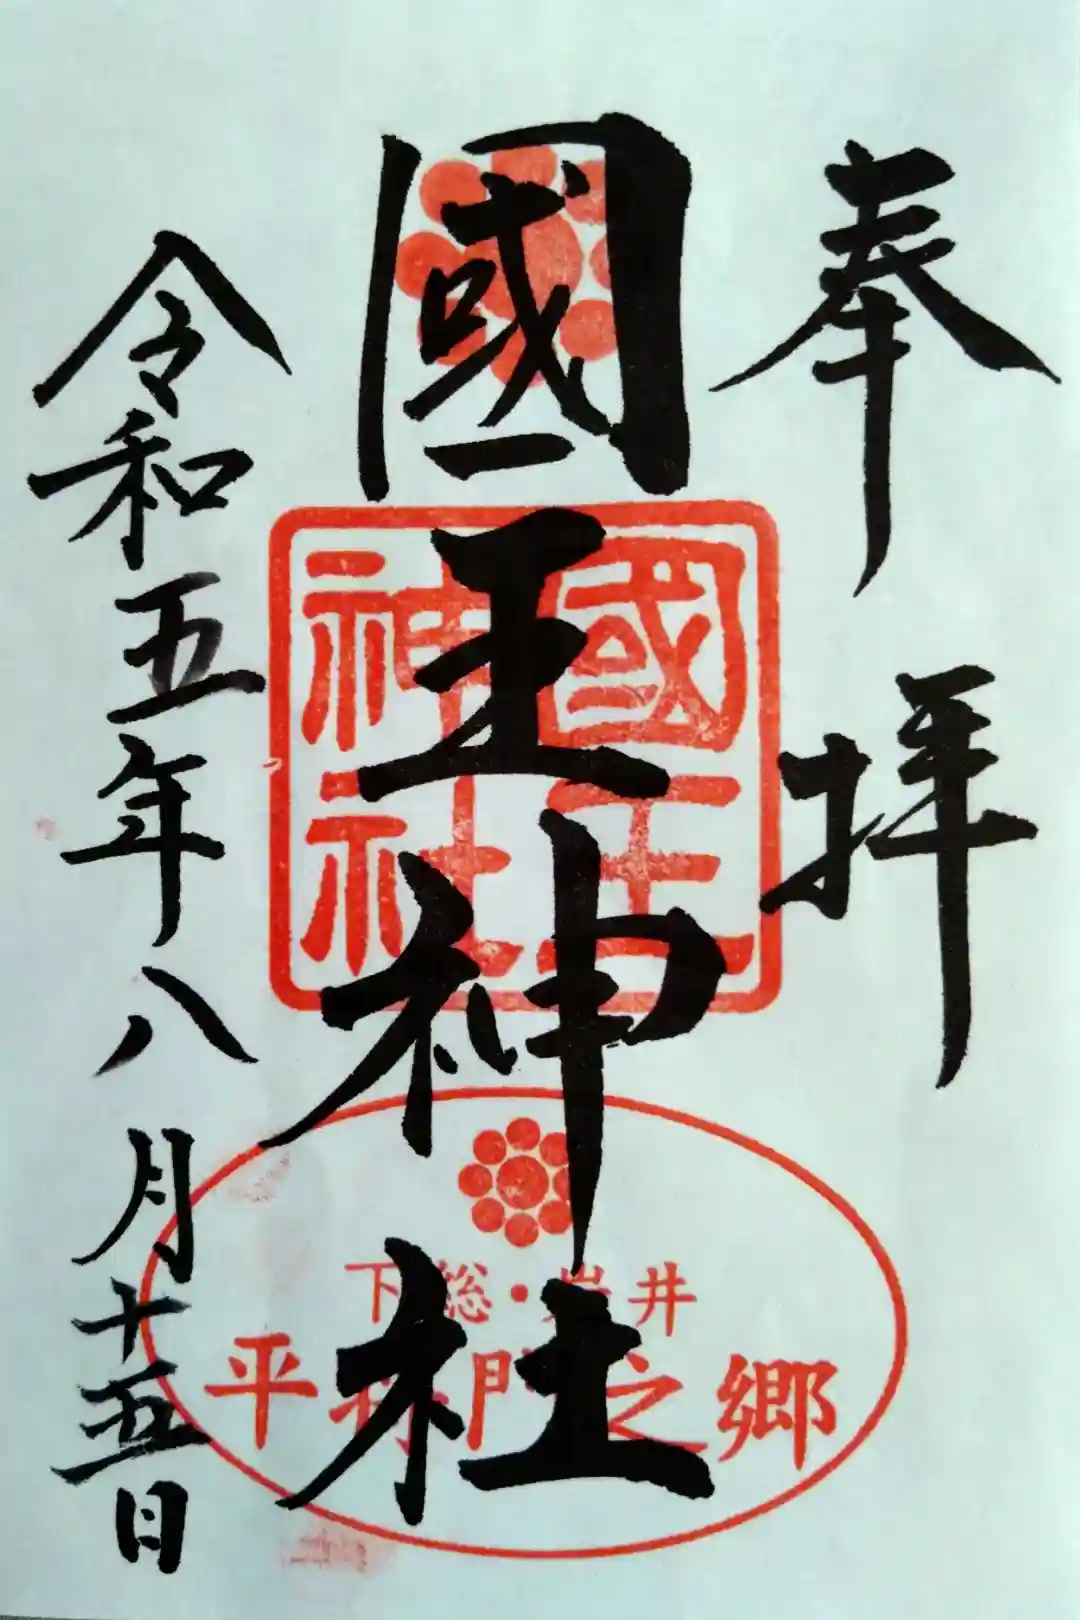 奉拝
國王神社
國王
神社
下総・岩井
平将門之郷
令和五年八月十五日